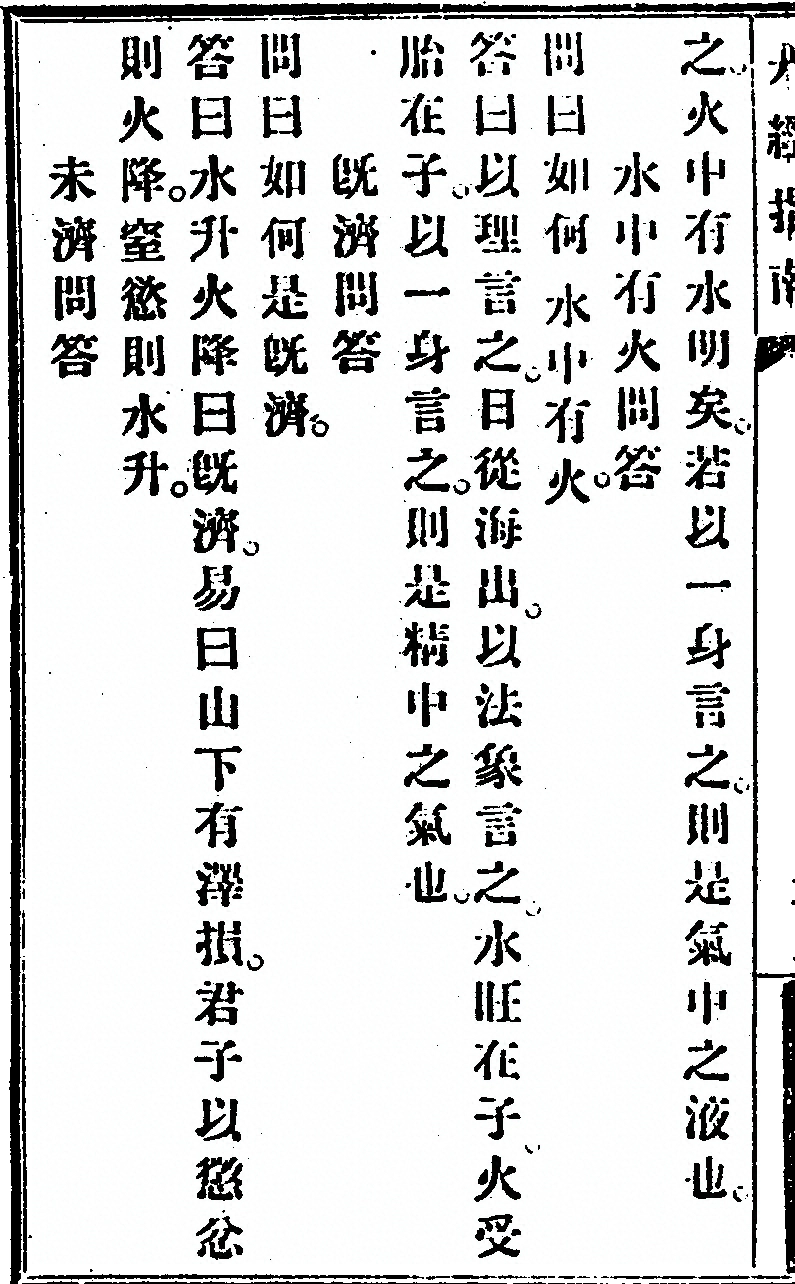 之。火中有水明矣。若以一身言之。則是氣中之液也。
水中有火問答
問曰如何水中有火。
答曰以理言之。日從海出。以法象言之。水旺在子。火受
胎在子。以一身言之。則是精中之氣也。
旣濟問答
問曰如何是旣濟。
答曰水升火降曰旣濟。易曰山下有澤損。君子以懲忿
則火降。窒慾則水升。
未濟問答